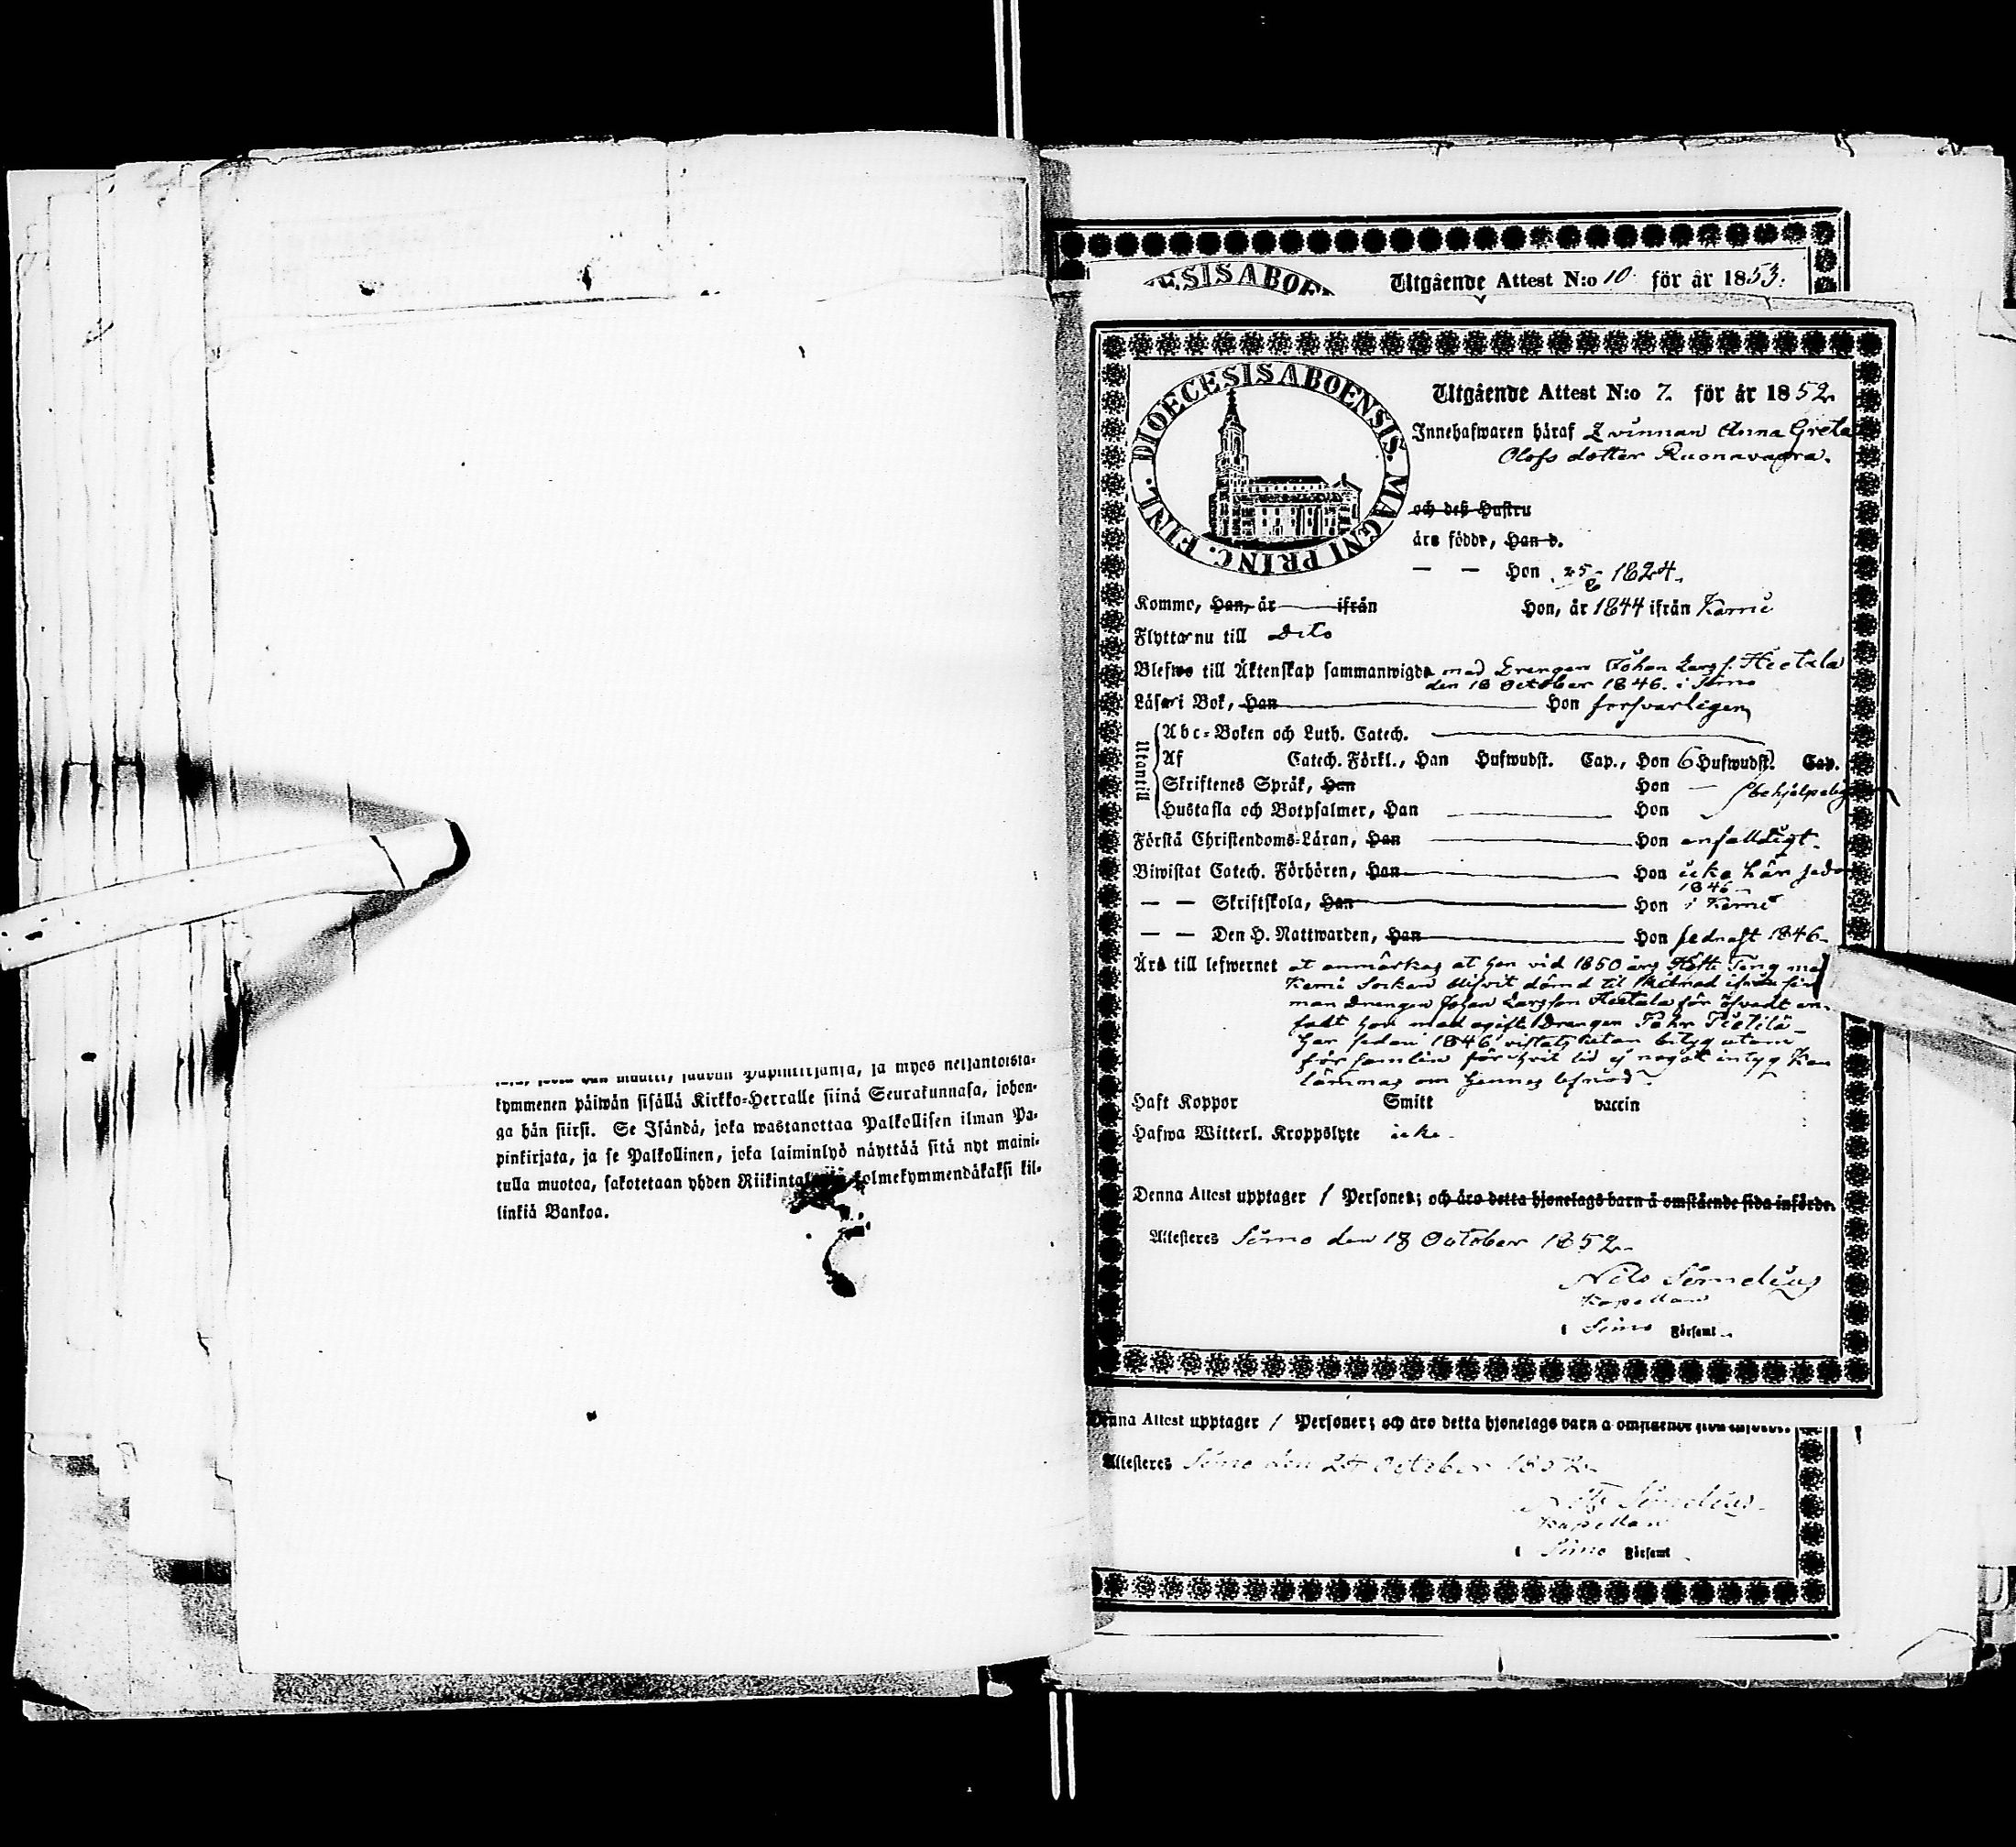 kymmenen päiwän sisällä Kirkko-Herralle siinä Seurakunnasa, johon-
ga hän siirsi. Se Isändä, joka wastanottaa Palkollisen ilman Pa-
pinkirjata, ja se Palkollinen, joka laiminlyö näyttää sitä nyt maini-
tulla muotoa, sakotetaan yhden Riikintalarin kolmekymmendäkaksi kil-
linkiä Bankoa.
ESIS ABOEN
Utgående Attest N:o 10 för år 1853.
DIOECESIS ABOENSIS. MAGNI PRINC. FINL.
Utgående Attest N:o 7. för år 1852
Innehafwaren häraf Qvinnan Anna Greta
Olofs dotter Ruonavaara.
och deß Hustru
äro födde, Han d.
— — Hon 25 1824.
Kommo, Han, år ifrån Hon, år 1844 ifrån Kemi
Flytta nu till Dito
Blefwo till Äktenskap sammanwigde med Drengen Johan Larss. Hietala
den 18 October 1846. i Simo
Läsa i Bok, Han Hon försvarligen
Utantill
Abc-Boken och Luth. Catech.
Af Catech. Förkl., Han Hufwudst. Cap., Hon 6 Hufwudst. Cap.
Skriftenes Språk, Han Hon —
Hustafla och Botpsalmer, Han Hon
Förstå Christendoms-Läran, Han Hon enfalldigt.
Biwistat Catech. Förhören, Han Hon icke här sedan
1846
— — Skriftskola, Han Hon i Kemi
— — Den H. Nattwarden, Han Hon sednast 1846
Äro till lefwernet at anmärkas at hon vid 1850 års Höste Ting med
Kemi Socken blifvit dömd til skilnad ifrån sin
man Drengen Johan Larsson Hietala för
hon med ogifte Drengen Pietilä
har sedan 1846 vistats utan betyg utom
för samlin för hvil tid ej något intyg kan
lämnas om hennes lefnad.
Haft Koppor Smitt vaccin
Hafwa Witterl. Kroppslyte icke.
Denna Attest upptager 1 Personer; och äro detta hjonelags barn å omstående sida införde.
Attesteres Simo den 18 October 1852
Nils Simelius
Kapellan
i Simo Församl.
Denna Attest upptager 1 Personer; och äro detta hjonelags barn å omstående sida införde.
Attesteres Simo den October 1852
Simelius
Kapellan
i Simo Församl